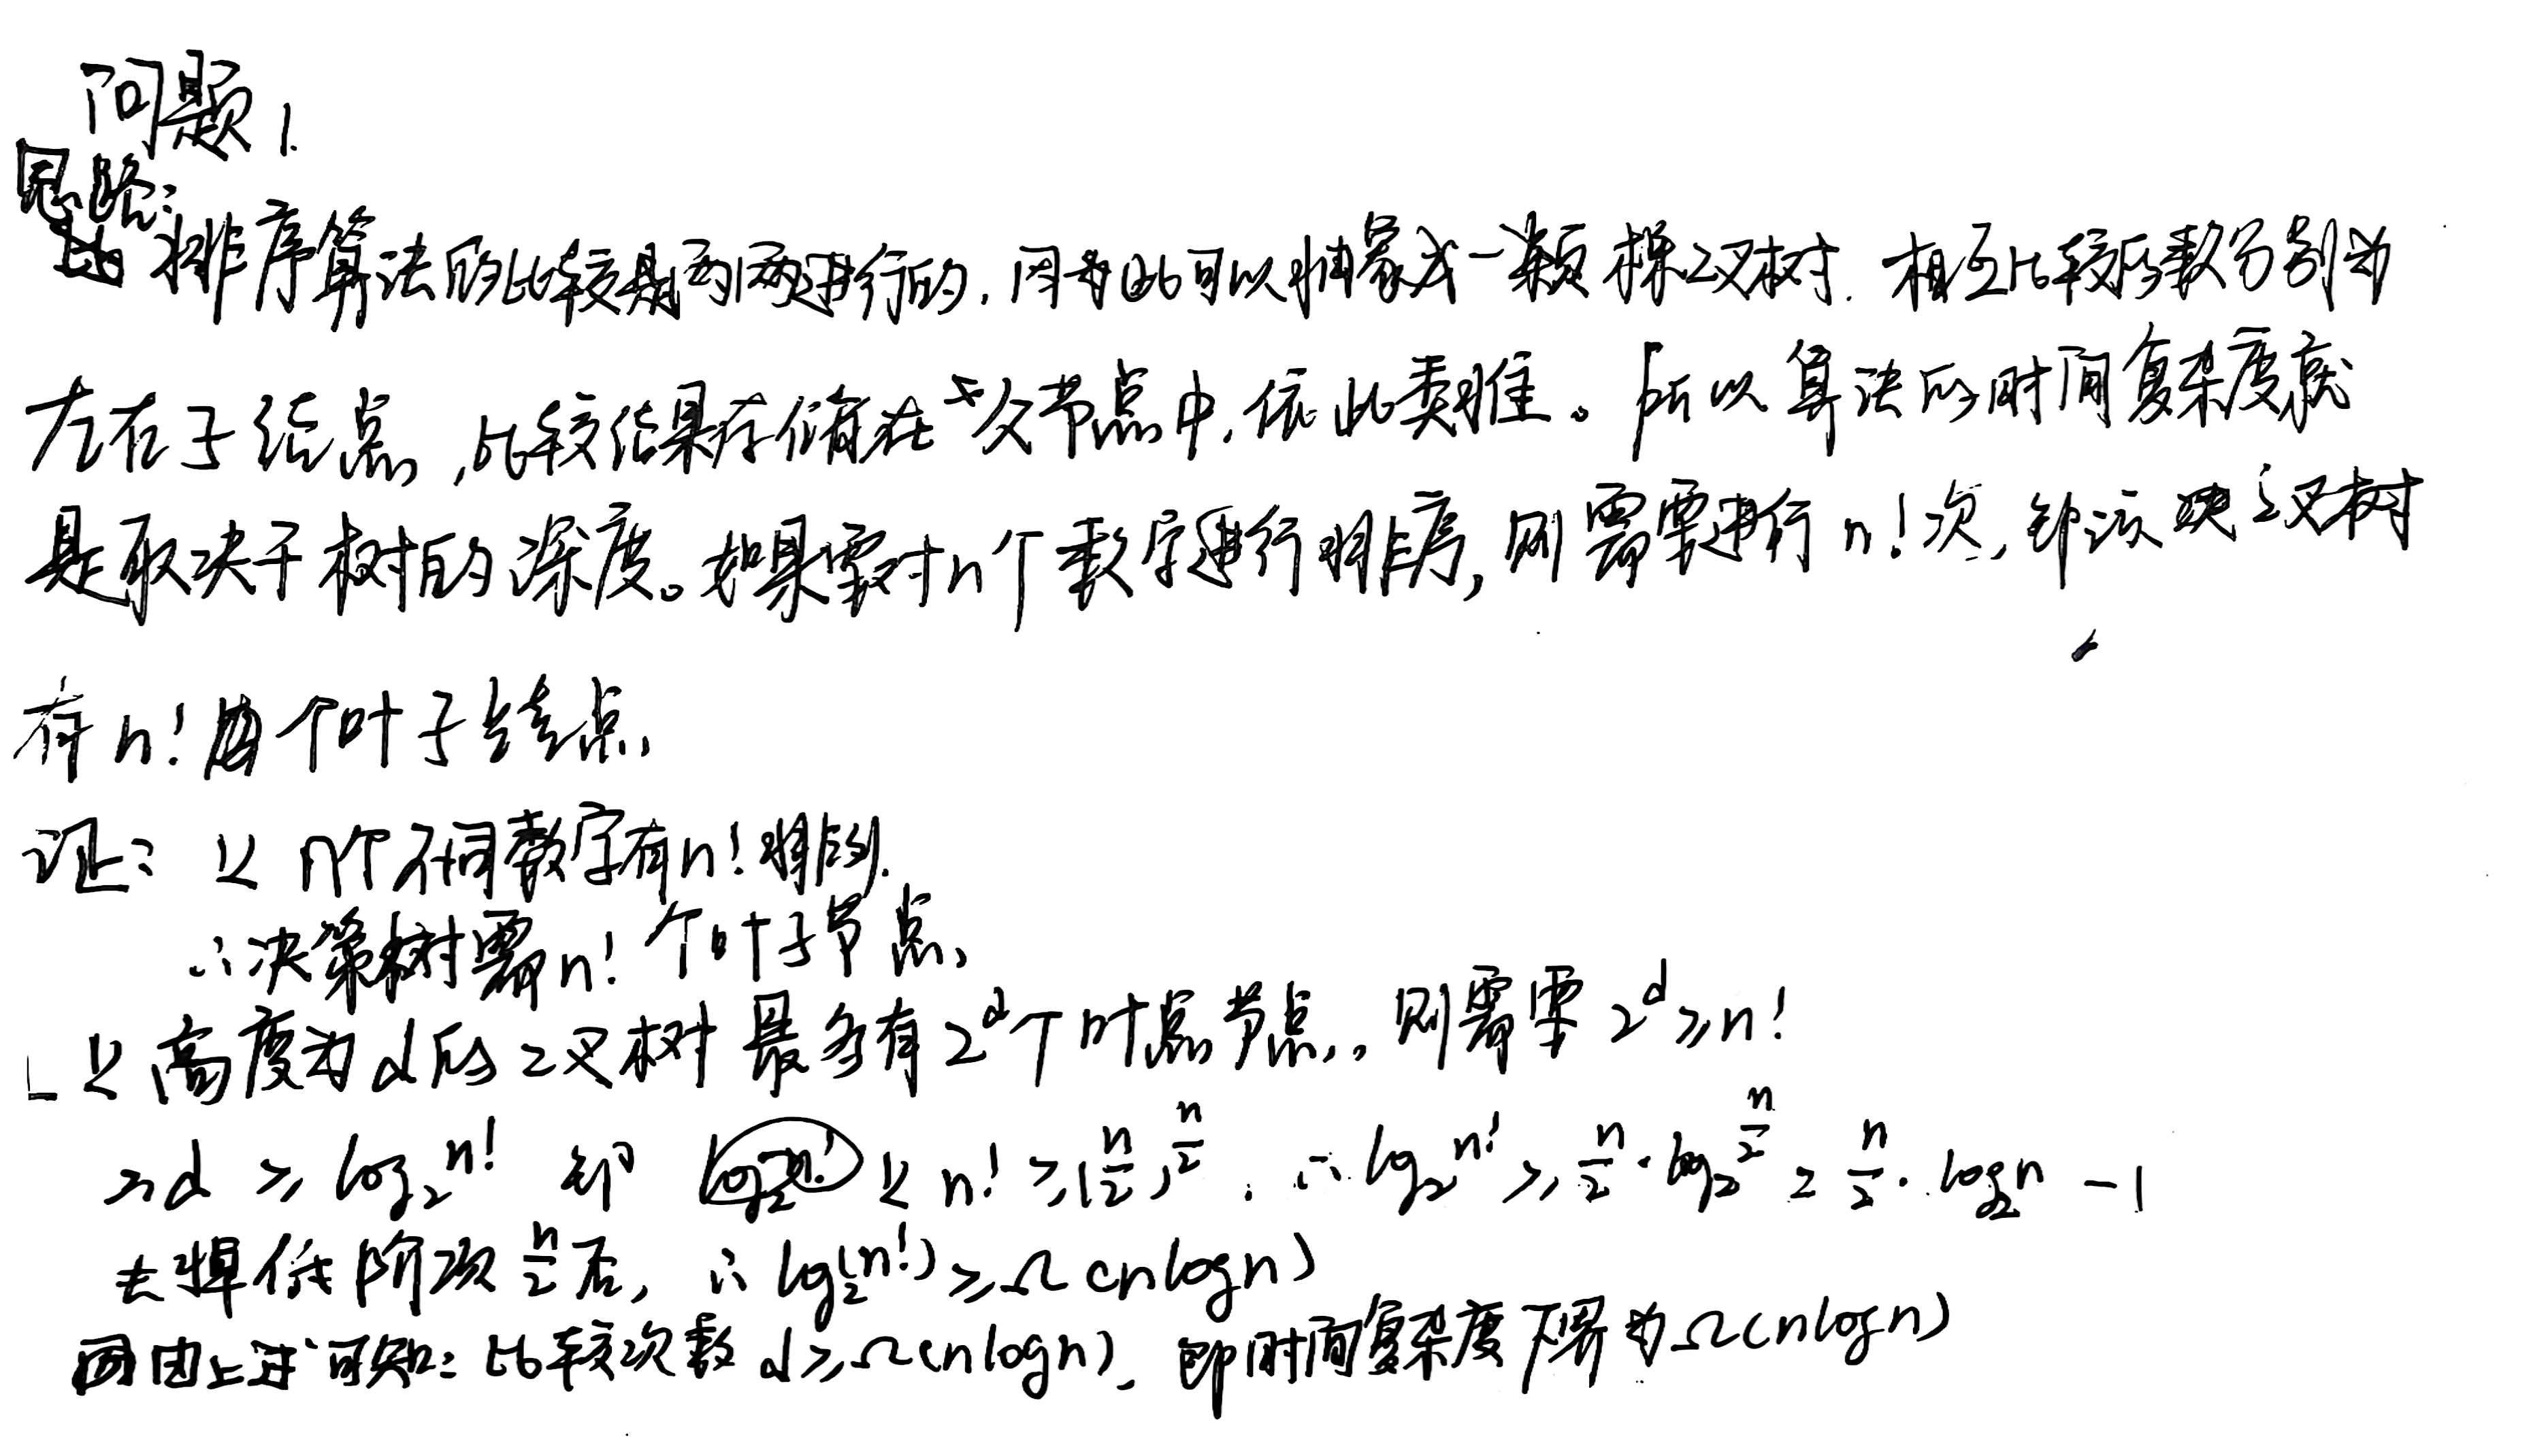 问题1.
思路:
排序算法的比较是两两进行的，因此可以抽象成一棵二叉树. 相互比较的数分别为
左右子结点,比较结果存储在父节点中,依此类推。所以算法的时间复杂度就
是取决于树的深度。如果要对n个数字进行排序,则需要进行n!次,即该二叉树
有n!个叶子结点.
证: ∵ n个不同数字有n!排列.
∴决策树需n!个叶子节点.
∵高度为d的二叉树最多有2^d个叶点节点., 则需要 2^d ≥ n!
∴d ≥ log₂n! 即 ∵ n! ≥ (n/2)^(n/2). ∴ log₂n! ≥ n/2 · log₂ n/2 = n/2 · log₂n - 1
去掉低阶项 n/2 后, ∴ log₂(n!) ≥ Ω(nlogn)
由上述可知: 比较次数 d ≥ Ω(nlogn), 即时间复杂度下界为Ω(nlogn)